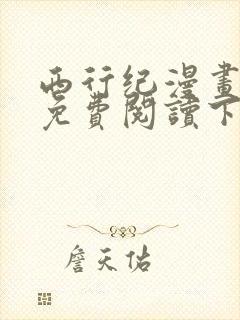 西行纪漫畫
免費閱讀下
詹天佑